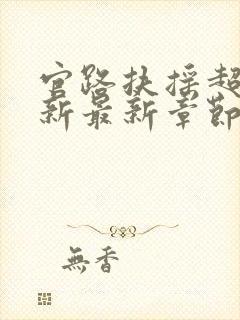 官路扶摇超
新最新章節
無香